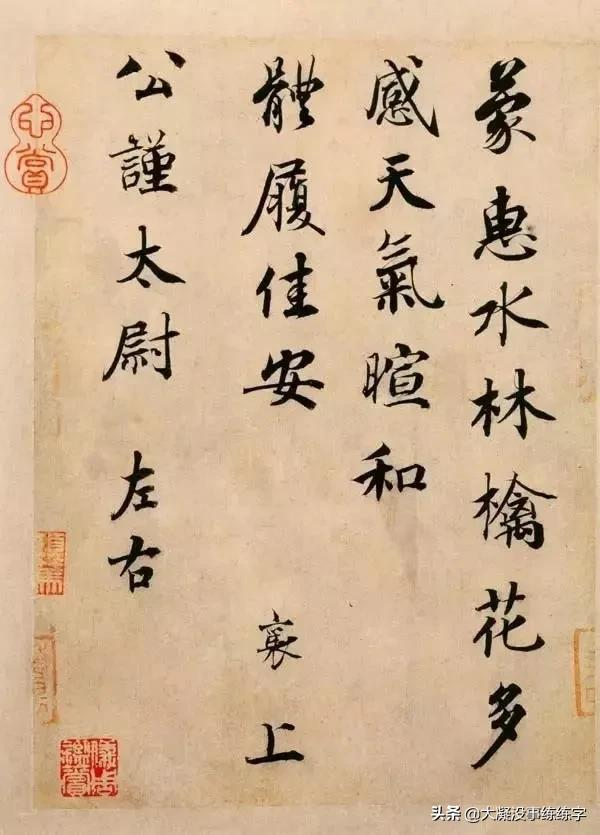 蒙惠水林檎花多
感天氣暄和
體履佳安
襄上
公謹太尉 左右
頭条 @大凝没事练练字